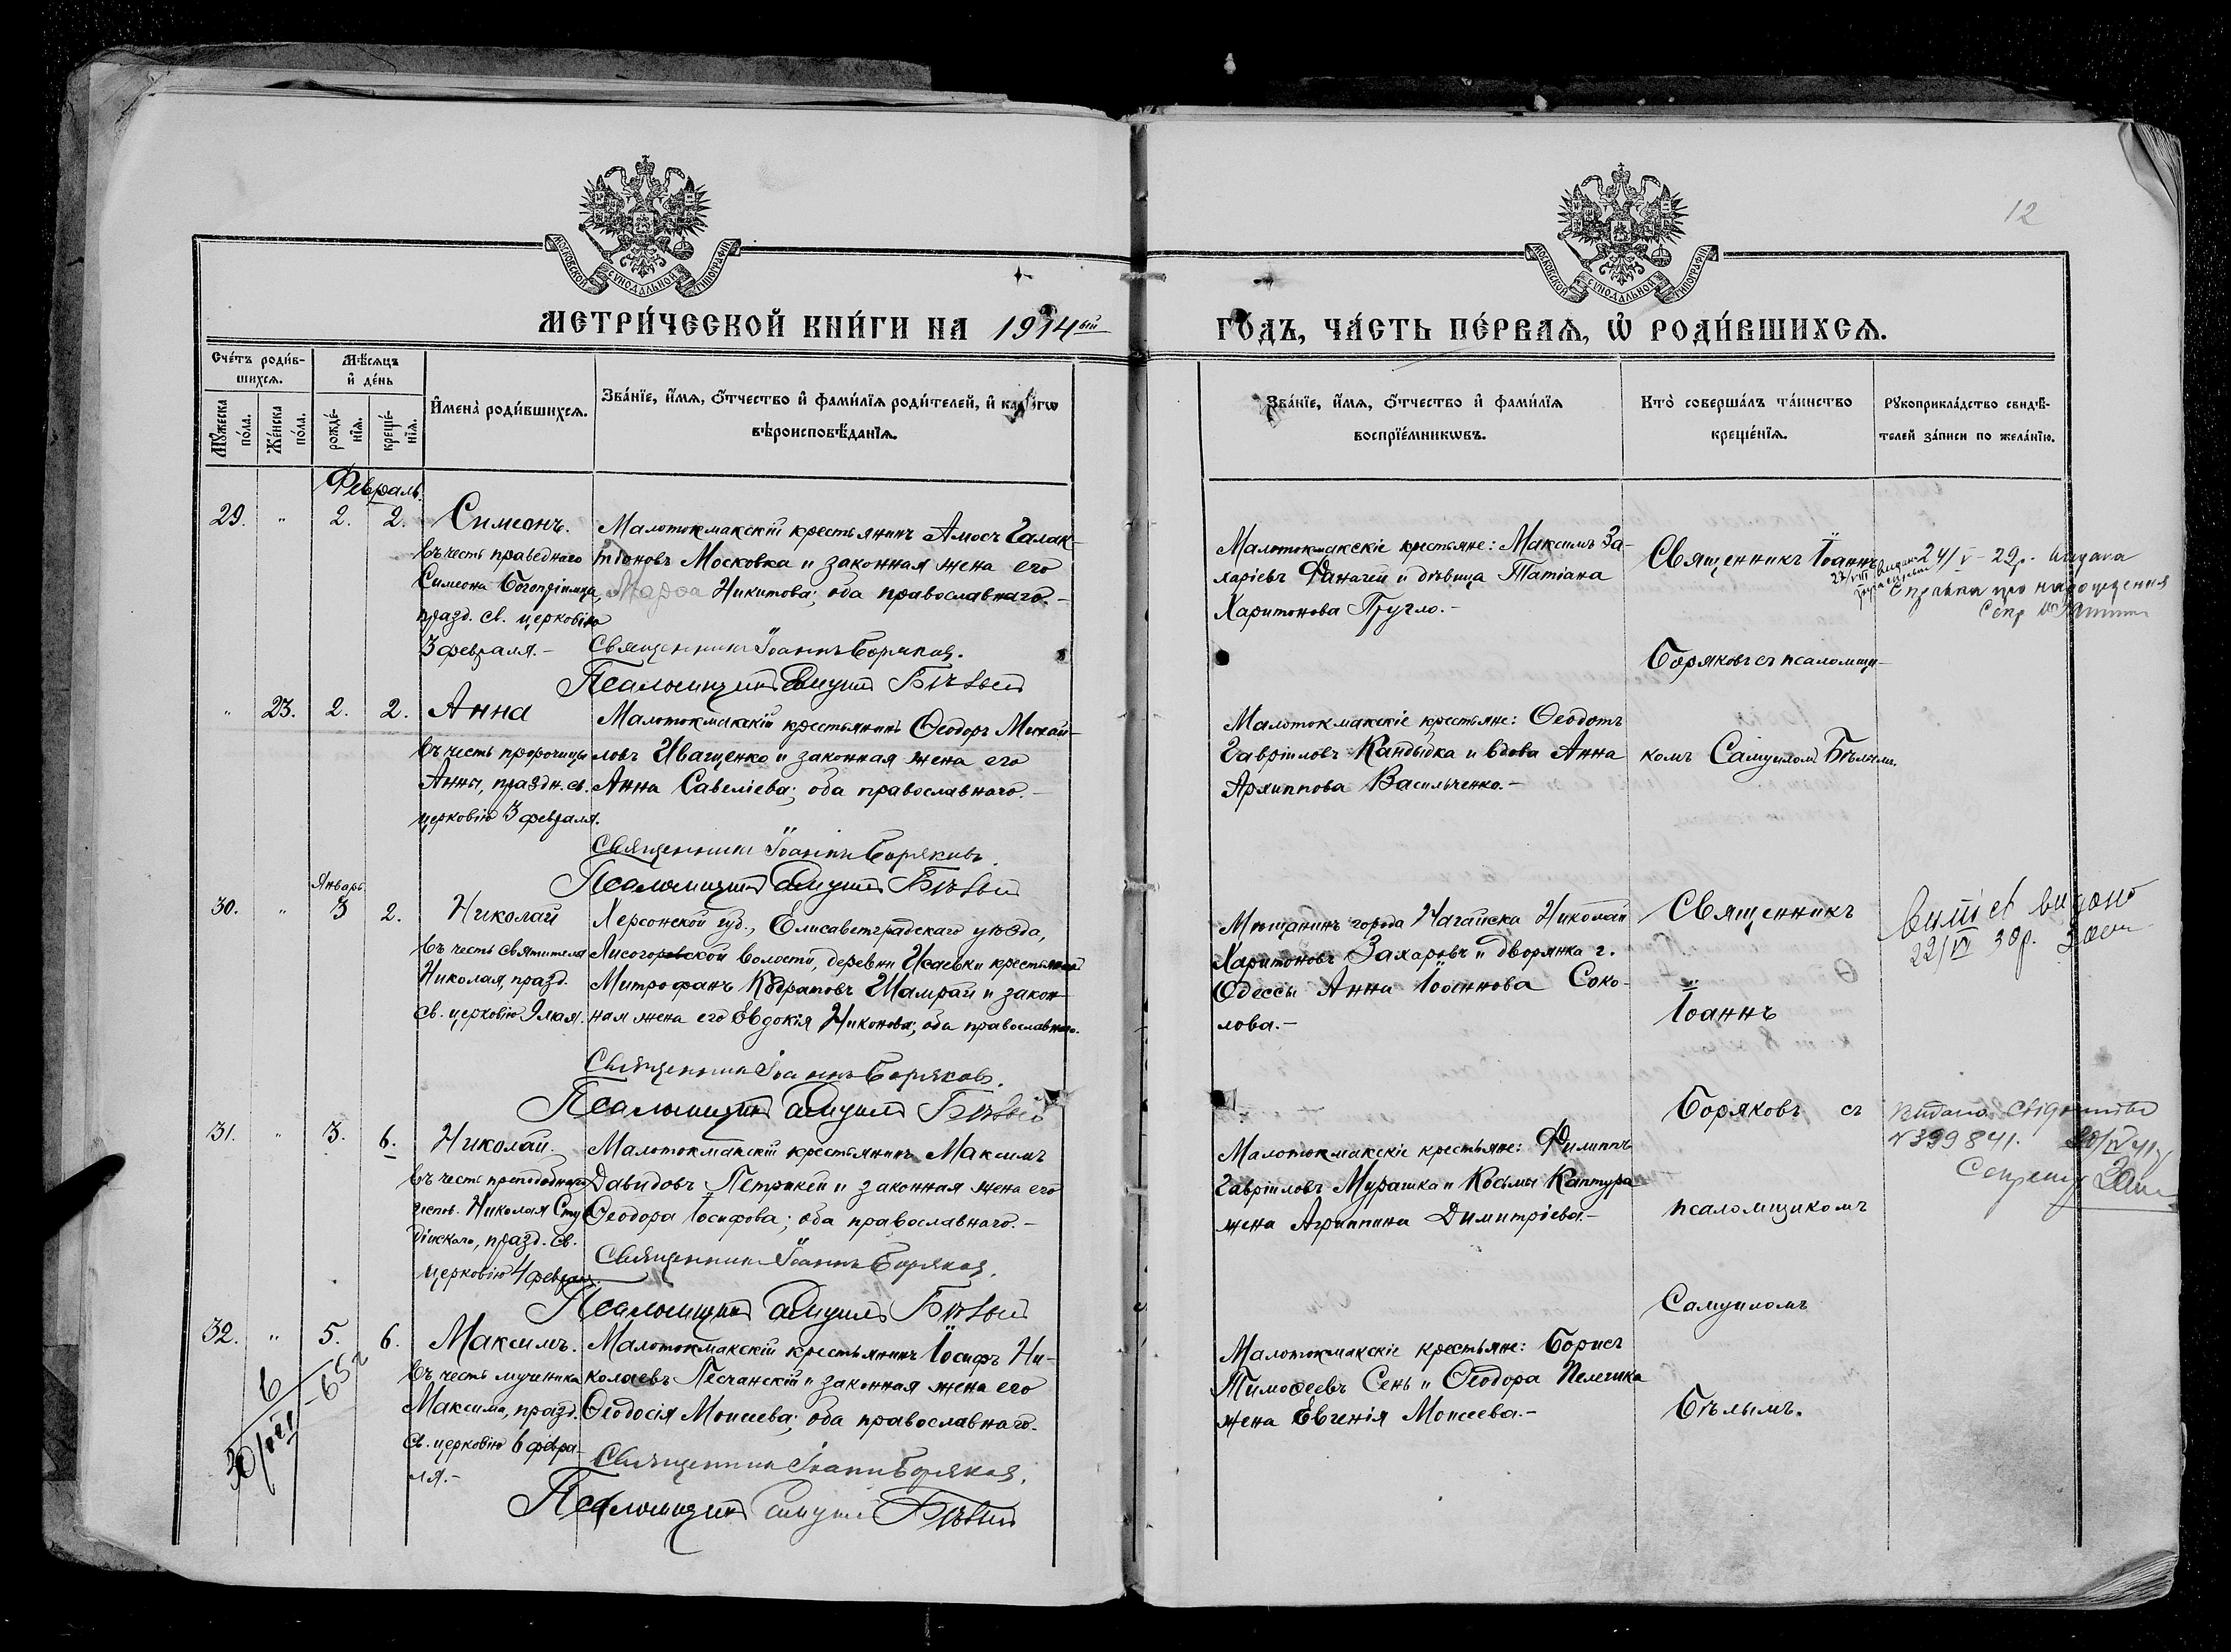 12
МОСКОВСКОЙ СѴНОДАЛЬНОЙ ТИПОГРАФІИ
МОСКОВСКОЙ СѴНОДАЛЬНОЙ ТИПОГРАФІИ
МЕТРИ́ЧЕСКОЙ КНИ́ГИ НА 1914ый
ГО́ДЪ, ЧА́СТЬ ПЕ́РВАѦ, Ѽ РОДИ́ВШИХСѦ.
Сче́тъ роди́в-
шихсѧ.
Мꙋ́жеска по́ла.
Же́нска по́ла.
Мѣ́сѧцъ
и҆ де́нь
рожде́-
нїѧ.
креще́-
нїѧ.
И҆мена̀ роди́вшихсѧ.
Зва́нїе, и҆́мѧ, ѻ҆́тчество и҆ фами́лїѧ роди́телей, и҆ како́гѡ
вѣроисповѣ́данїѧ.
Зва́нїе, и҆́мѧ, ѻ҆́тчество и҆ фами́лїѧ
воспрїе́мникѡвъ.
Кто̀ соверша́лъ та́инство
креще́нїѧ.
Рꙋкоприкла́дство свидѣ́-
телей за́писи по жела́нїю.
Февраль.
29. " 2. 2. Симеонъ.
въ честь праведнаго
Симеона Богопріимца,
празд. св. церковію
3 февраля.-
Малотокмакскій крестьянинъ Амосъ Галак-
тіоновъ Московка и законная жена его
Марѳа Никитова; оба православнаго.-
Священникъ Іоаннъ Боряковъ.
Псаломщикъ Самуилъ Бѣлый
Малотокмакскіе крестьяне: Максимъ За-
харіевъ Фаначей и дѣвица Татіана
Харитонова Пругло.-
Священникъ Іоаннъ
24/V-29р. видана
справка про народження
Боряковъ съ псаломщи-
" 23. 2. 2. Анна
въ честь пророчицы
Анны, праздн. св.
церковію 3 февраля.
Малотокмакскій крестьянинъ Ѳеодоръ Михай-
ловъ Иващенко и законная жена его
Анна Савеліева; оба православнаго.-
Священникъ Іоаннъ Боряковъ.
Псаломщикъ Самуилъ Бѣлый
Малотокмакскіе крестьяне: Ѳеодотъ
Гавріиловъ Кандыдка и вдова Анна
Архиппова Васильченко.-
комъ Самуиломъ Бѣлымъ.
Январь.
30. " 3 2. Николай
въ честь святителя
Николая, празд.
св. церковію 9 мая.
Херсонской губ., Елисаветградскаго уѣзда,
Лисогорской волости, деревни Исаевки крестьянинъ
Митрофанъ Кодратовъ Шамрай и закон-
ная жена его Евдокія Никонова; оба православнаго.
Священникъ Іоаннъ Боряковъ.
Псаломщикъ Самуилъ Бѣлый
Мѣщанинъ города Нагайска Николай
Харитоновъ Захаровъ и дворянка г.
Одессы Анна Іоаннова Соко-
лова.-
Священникъ
Іоаннъ
витяг видано
22/VI 30р.
31. " 3. 6. Николай.
въ честь преподобнаго
испов. Николая Сту-
дійскаго, празд. св.
церковію 4 февраля.
Малотокмакскій крестьянинъ Максимъ
Давидовъ Петрикей и законная жена его
Ѳеодора Іосифова; оба православнаго.-
Священникъ Іоаннъ Боряковъ.
Псаломщикъ Самуилъ Бѣлый
Малотокмакскіе крестьяне: Филиппъ
Гавріиловъ Мурашка и Косьмы Каптура
жена Агриппина Димитріева.-
Боряковъ съ
псаломщикомъ
Самуиломъ
№ 399841.
32. " 5. 6. Максимъ.
въ честь мученика
Максима, празд.
св. церковію 6 февра-
ля.-
Малотокмакскій крестьянинъ Іосифъ Ни-
колаевъ Песчанскій и законная жена его
Ѳеодосія Моисеева; оба православнаго.
Священникъ Іоаннъ Боряковъ.
Псаломщикъ Самуилъ Бѣлый
Малотокмакскіе крестьяне: Борисъ
Тимоѳеевъ Сень и Ѳеодора Пелешка
жена Евгенія Моисеева.-
Бѣлымъ.